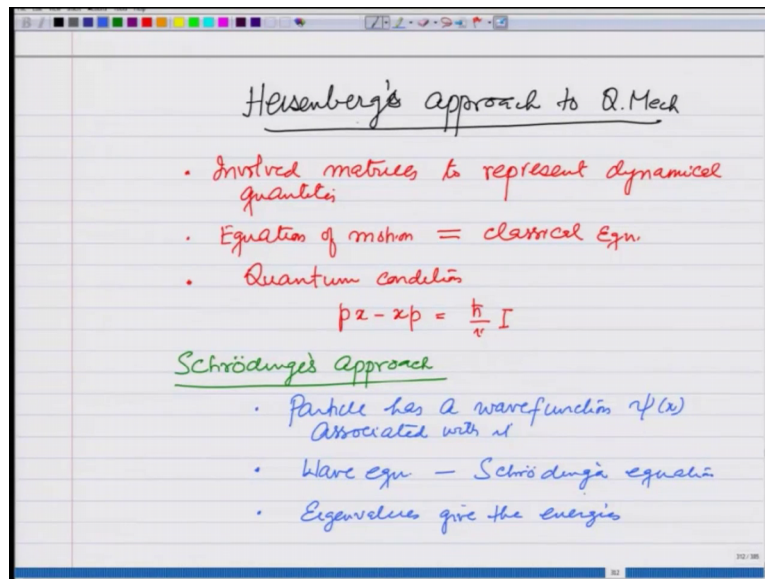 Heisenberg's approach to Q. Mech
. Involved matrices to represent dynamical
quantities
. Equation of motion = classical Eqn.
. Quantum condition
px - xp = ħ/i I
Schrödinger's Approach
. Particle has a wavefunction ψ(x)
associated with it
. Wave eqn. – Schrödinger equation
. Eigenvalues give the energies
312 / 385
312